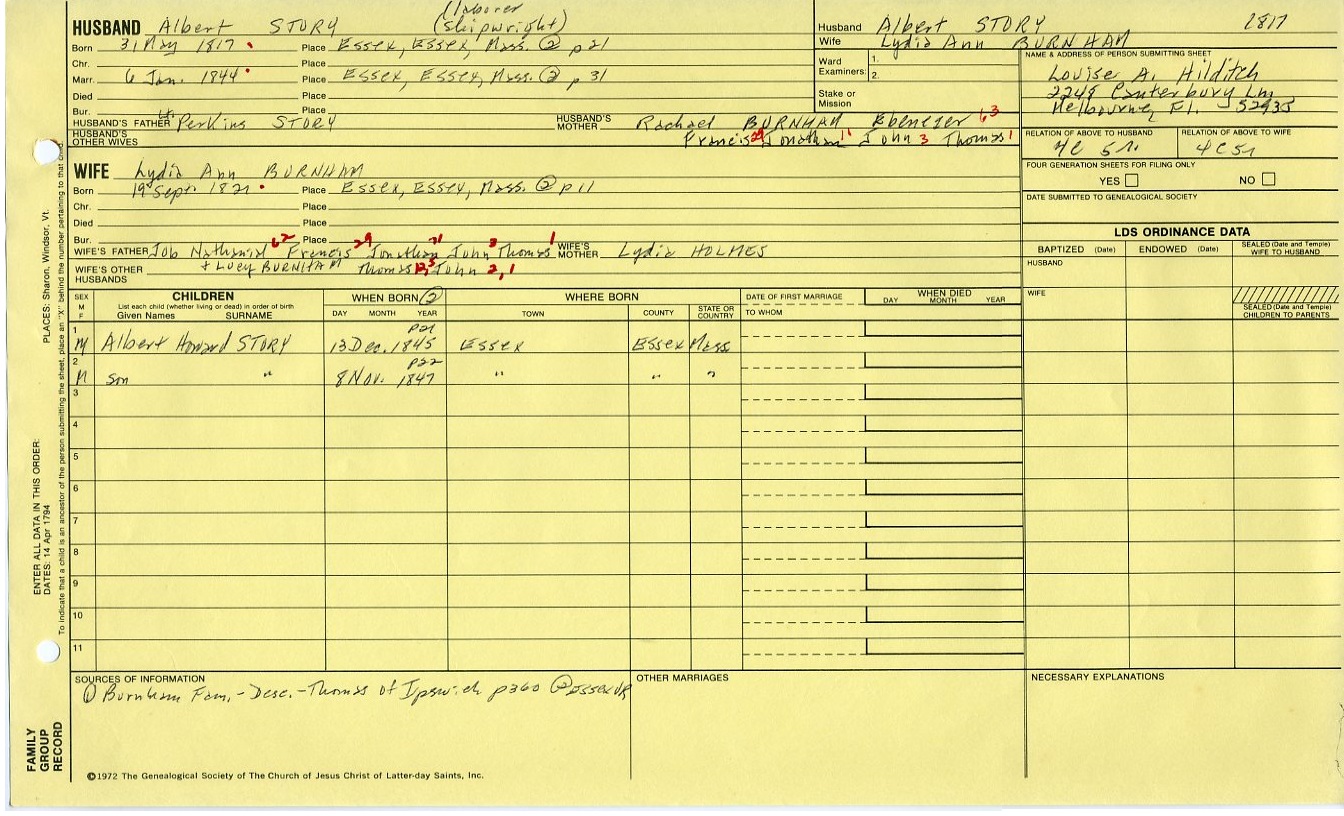 (laborer
HUSBAND Albert STORY (shipwright)
Born 31 May 1817 Place Essex, Essex, Mass. ② p21
Chr. Place
Marr. 6 Jan. 1844 Place Essex, Essex, Mass. ② p 31
Died Place
Bur. Place
HUSBAND'S FATHER Perkins STORY HUSBAND'S MOTHER Rachael BURNHAM Ebenezer 63
HUSBAND'S OTHER WIVES Francis 29 Jonathan 11 John 3 Thomas 1
Husband Albert STORY 1817
Wife Lydia Ann BURNHAM
Ward Examiners: 1.
2.
Stake or Mission
NAME & ADDRESS OF PERSON SUBMITTING SHEET
Louise A. Hilditch
2249 Canterbury Ln
Melbourne, Fl. 32935
RELATION OF ABOVE TO HUSBAND RELATION OF ABOVE TO WIFE
4C 5r. 4C5r
FOUR GENERATION SHEETS FOR FILING ONLY
YES NO
DATE SUBMITTED TO GENEALOGICAL SOCIETY
WIFE Lydia Ann BURNHAM
Born 19 Sept. 1821 Place Essex, Essex, Mass. ② p11
Chr. Place
Died Place
Bur. Place
WIFE'S FATHER Job Nathaniel 62 Francis 29 Jonathan 11 John 3 Thomas 1 WIFE'S MOTHER Lydia HOLMES
WIFE'S OTHER HUSBANDS + Lucy BURNHAM Thomas John 2,1
LDS ORDINANCE DATA
BAPTIZED (Date) ENDOWED (Date) SEALED (Date and Temple) WIFE TO HUSBAND
HUSBAND
WIFE
SEALED (Date and Temple) CHILDREN TO PARENTS
SEX M F CHILDREN List each child (whether living or dead) in order of birth Given Names SURNAME WHEN BORN ② DAY MONTH YEAR WHERE BORN TOWN COUNTY STATE OR COUNTRY DATE OF FIRST MARRIAGE TO WHOM WHEN DIED DAY MONTH YEAR
p21
1 M Albert Howard STORY 13 Dec. 1845 Essex Essex Mass
p22
2 M son " 8 Nov. 1847 " " "
3
4
5
6
7
8
9
10
11
SOURCES OF INFORMATION
① Burnham Fam.-Desc.-Thomas of Ipswich p360 ② Essex VR
OTHER MARRIAGES
NECESSARY EXPLANATIONS
©1972 The Genealogical Society of The Church of Jesus Christ of Latter-day Saints, Inc.
FAMILY GROUP RECORD
ENTER ALL DATA IN THIS ORDER:
DATES: 14 Apr 1794
PLACES: Sharon, Windsor, Vt.
To indicate that a child is an ancestor of the person submitting the sheet, place an "X" behind the number pertaining to that child.